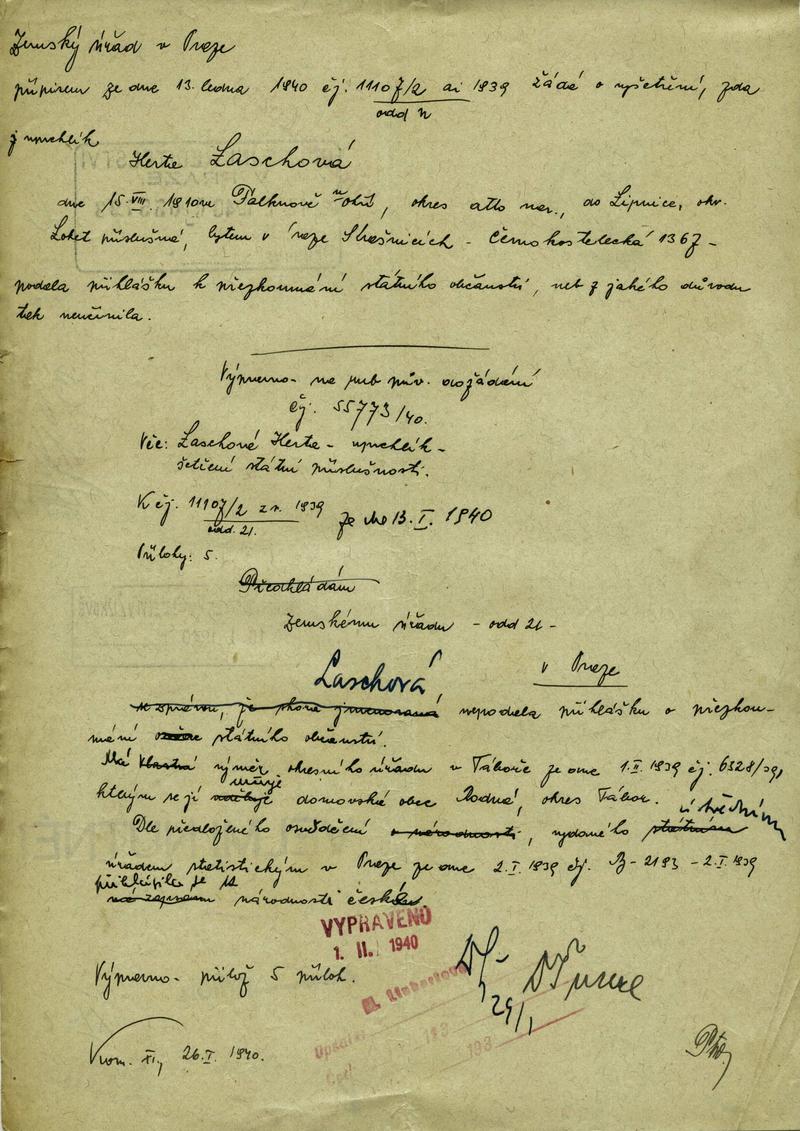 Zemský úřad v Praze
přípisem ze dne 13. ledna 1940 čj. 1110f/2 ai 1939 žádá o vyšetření, zda
odd
uprchlík
Herta Laschová
dne 15. VIII. 1910 ve Falknově n/Ohří, okres atto nar., do Lipnice, okr.
Loket příslušná, bytem v Praze Strašnicích - Černokostelecká 1367 -
podala přihlášku k přezkoumání státního občanství, neb z jakého důvodu
tak neučinila.
Vypraveno - na rub pův. dožádání
čj. 55773/40.
Věc: Laschová Herta - uprchlík -
šetření státní příslušnosti.
K čj. 1110f/2 z r. 1939 ze dne 13. I. 1940
odd. 21.
Přílohy: 5.
Předkládám
Zemskému úřadu - odd 21 -
v Praze
Laschová
se zprávou, že shora jmenovaná nepodala přihlášku o přezkou-
mání státního občanství.
Má vlastní výměr okresního úřadu v Táboře ze dne 1. II. 1939 čj. 6328/39,
kterým se jí domovská obec Rodná, okres Tábor.
určuje
ústředním
Dle předloženého osvědčení o národnosti, vydaného státním
úřadem statistickým v Praze ze dne 2. I. 1939 čj. B - 2193 - 2. I. 1939
přihlásila se k
národnosti české.
VYPRAVENO
1. II. 1940
Vypraveno - přilož 5 příloh.
29/I
XI, 26. I. 1940.